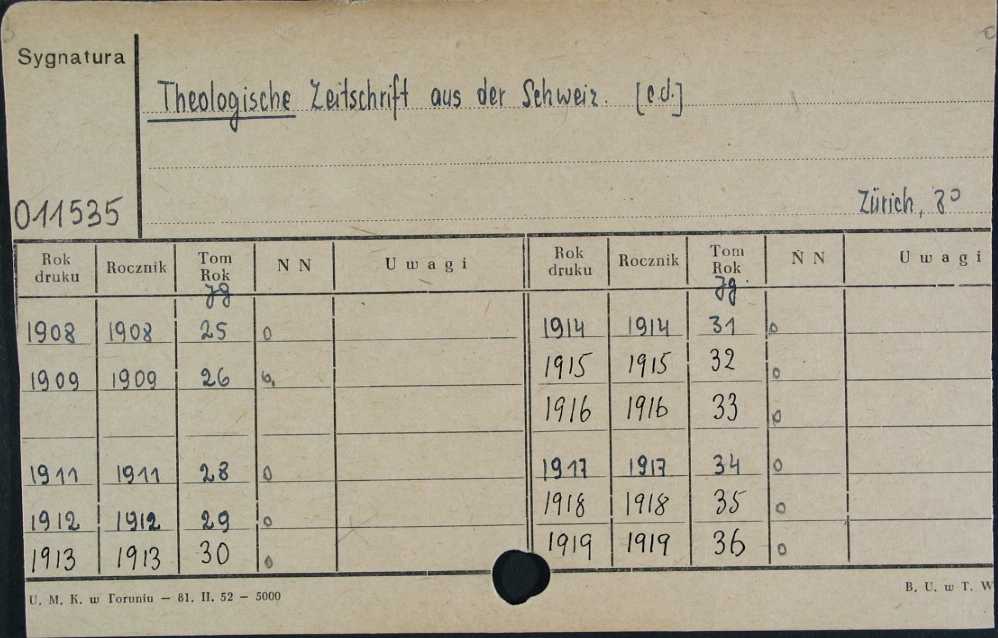 Sygnatura
Theologische Zeitschrift aus der Schweiz. [ed.]
011535
Zürich, 8°
Rok druku Rocznik Tom Rok N N Uwagi Rok druku Rocznik Tom Rok N N Uwagi
Jg Jg.
1908 1908 25 0 1914 1914 31 0
1909 1909 26 0 1915 1915 32 0
1916 1916 33 0
1911 1911 28 0 1917 1917 34 0
1912 1912 29 0 1918 1918 35 0
1913 1913 30 0 1919 1919 36 0
U. M. K. w Toruniu — 81. II. 52 — 5000
B. U. w T. W